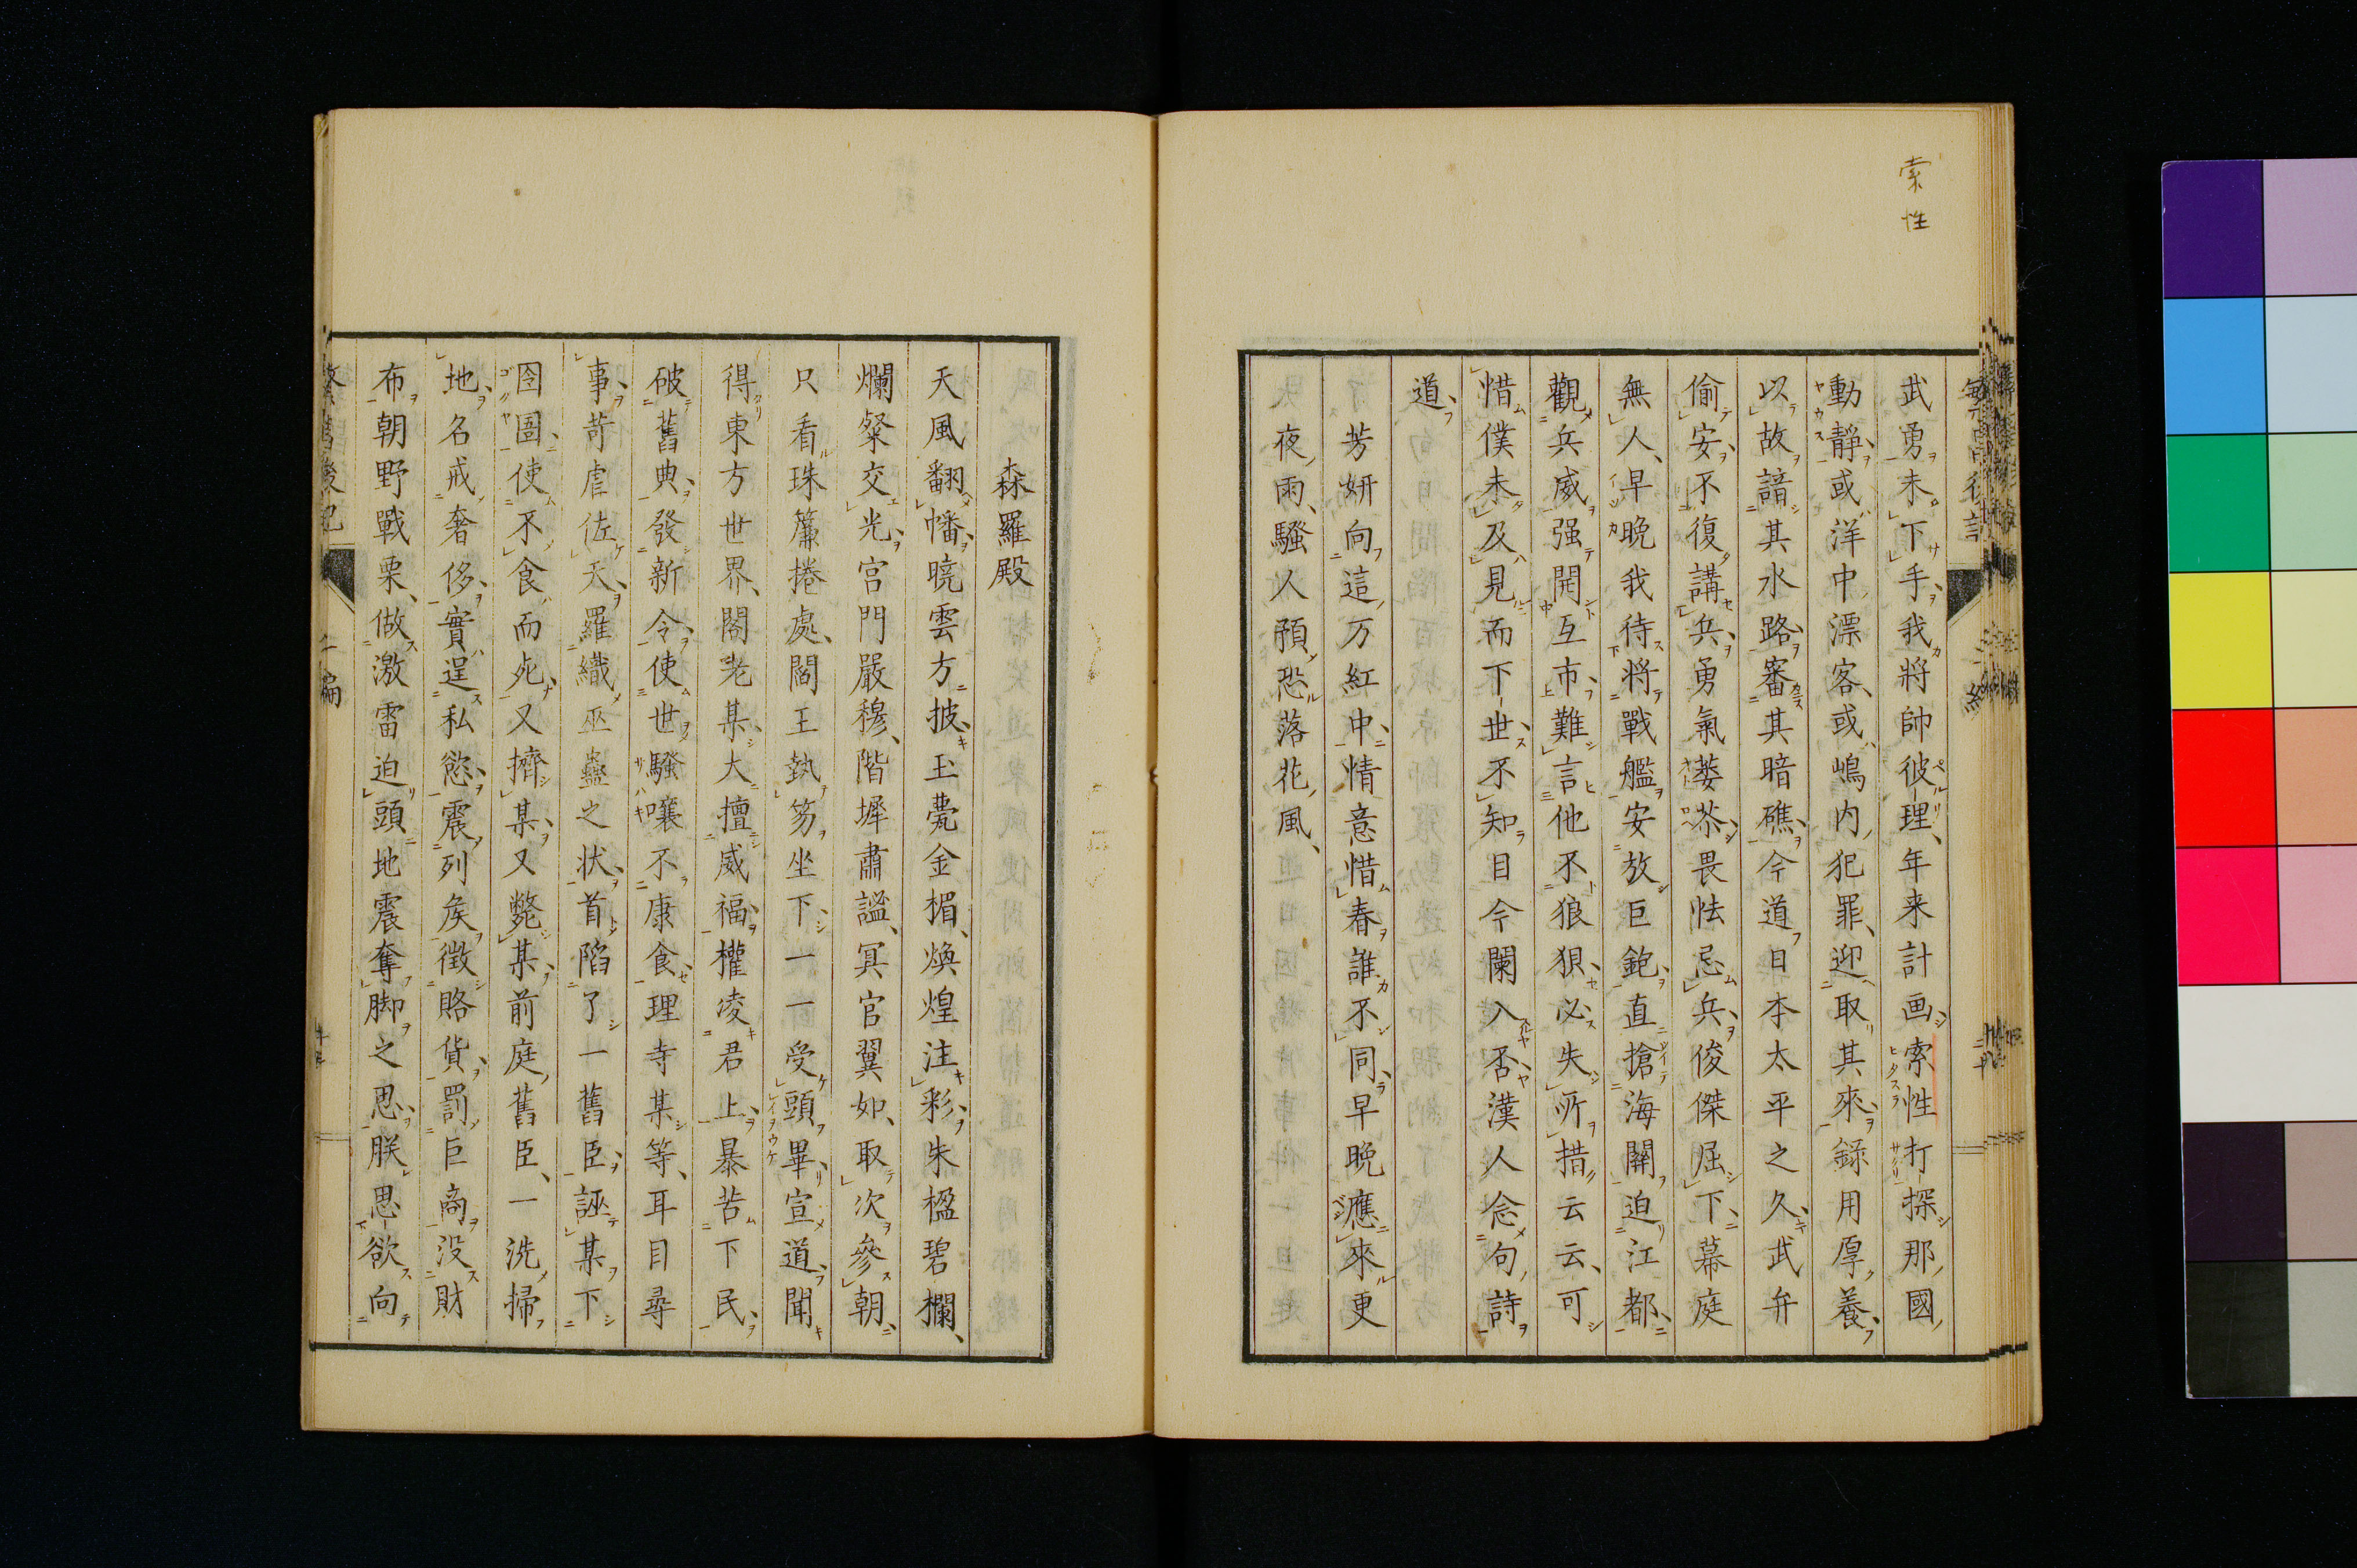 索性
武勇未下手我將帥彼理年来計画索性打探那國
動靜或洋中漂客或嶋内犯罪迎取其來錄用厚養
以故諳其水路審其暗礁今道日本太平之久武弁
偷安不復講兵勇氣萎苶畏怯忌兵俊傑屈下幕庭
無人早晚我待將戰艦安放巨鉋直搶海關迫江都
觀兵威强開互市難言他不狼狽必失所措云云可
惜僕未及見而下世不知目今闌入否漢人念句詩
道
芳妍向這万紅中情意惜春誰不同早晚應來更
夜雨騷人預恐落花風
森羅殿
天風翻幡曉雲方披玉甍金楣煥煌注彩朱楹碧欄
爛粲交光宮門嚴穆階墀肅謐冥官翼如取次參朝
只看珠簾捲處閻王執笏坐下一一受頭畢宣道聞
得東方世界閣老某大擅威福權凌君上暴苦下民
破舊典發新令使世騷嚷不康食理寺某等耳目尋
事苛虐佐天羅織巫蠱之状首陷了一舊臣誣某下
囹圄使不食而死又擠某又斃某前庭舊臣一洗掃
地名戒奢侈實逞私慾震列矦徵賂貨罰巨商没財
布朝野戰栗做激雷迫頭地震奪脚之思朕思欲向